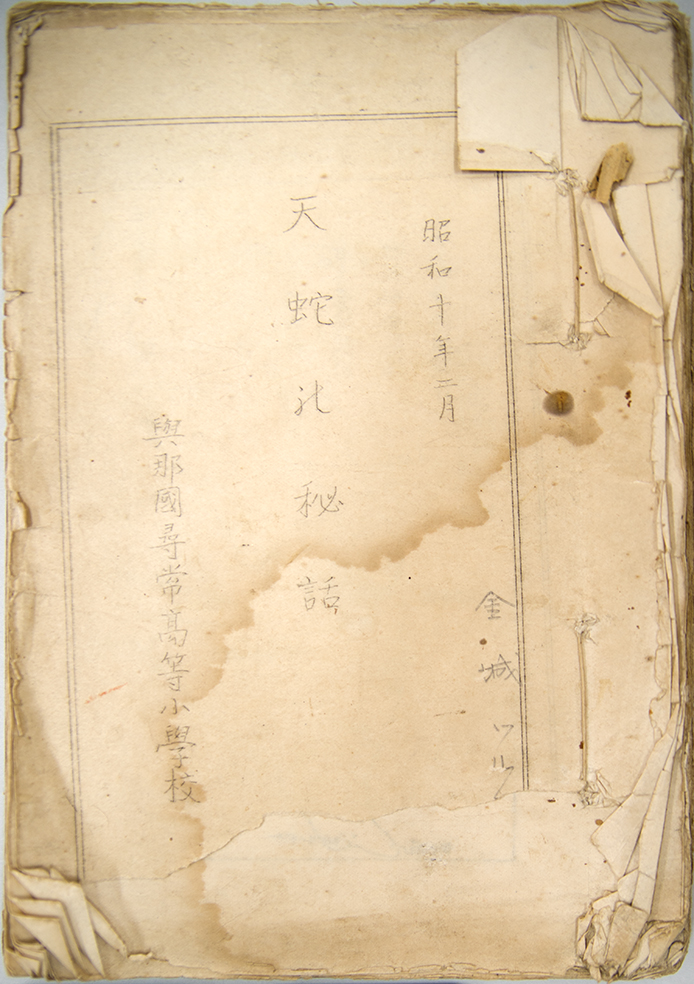 昭和十年二月
天蛇北秘話
與那國尋常高等小學校
金城ツル